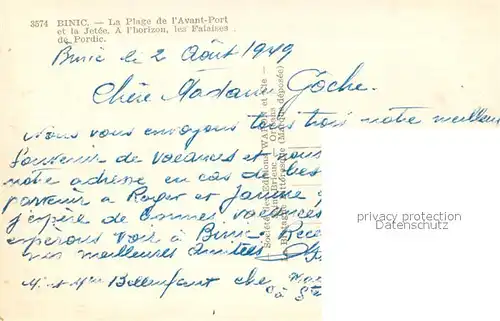 3574 BINIC. — La Plage de l'Avant-Port
et la Jetée. A l'horizon, les Falaises
de Pordic.
Binic le 2 Août 1949
Chère Madame Gôche.
Nous vous envoyons tous trois notre meilleur
Souvenir de vacances et nous
notre adresse en cas de bes
parvenir à Roger et
j'espère de bonnes vacances
espérons voir à Binic. Rece
meilleures Amitiés
M. et Mme che
à
Bretagne Pittoresque (Marque déposée)
privacy protection
Datenschutz